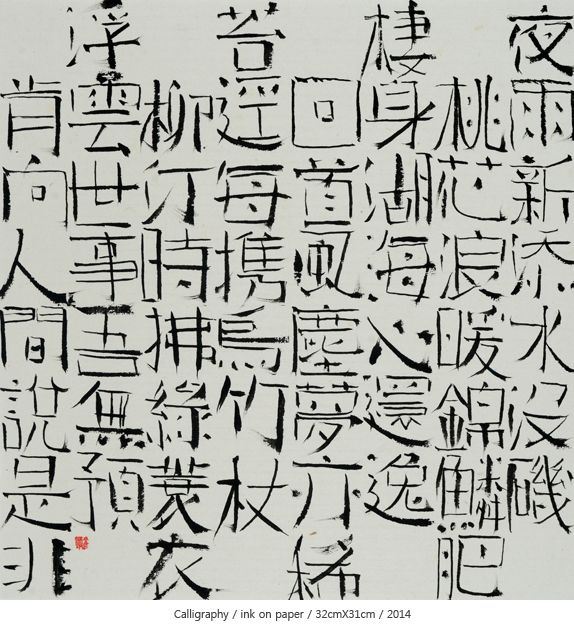 夜雨新添水没磯
桃花浪暖錦鱗肥
棲身湖海心還逸
回首風塵夢亦稀
苔逕每携烏竹杖
柳汀時拂綠蓑衣
浮雲世事吾無預
肯向人間說是非
Calligraphy / ink on paper / 32cmX31cm / 2014